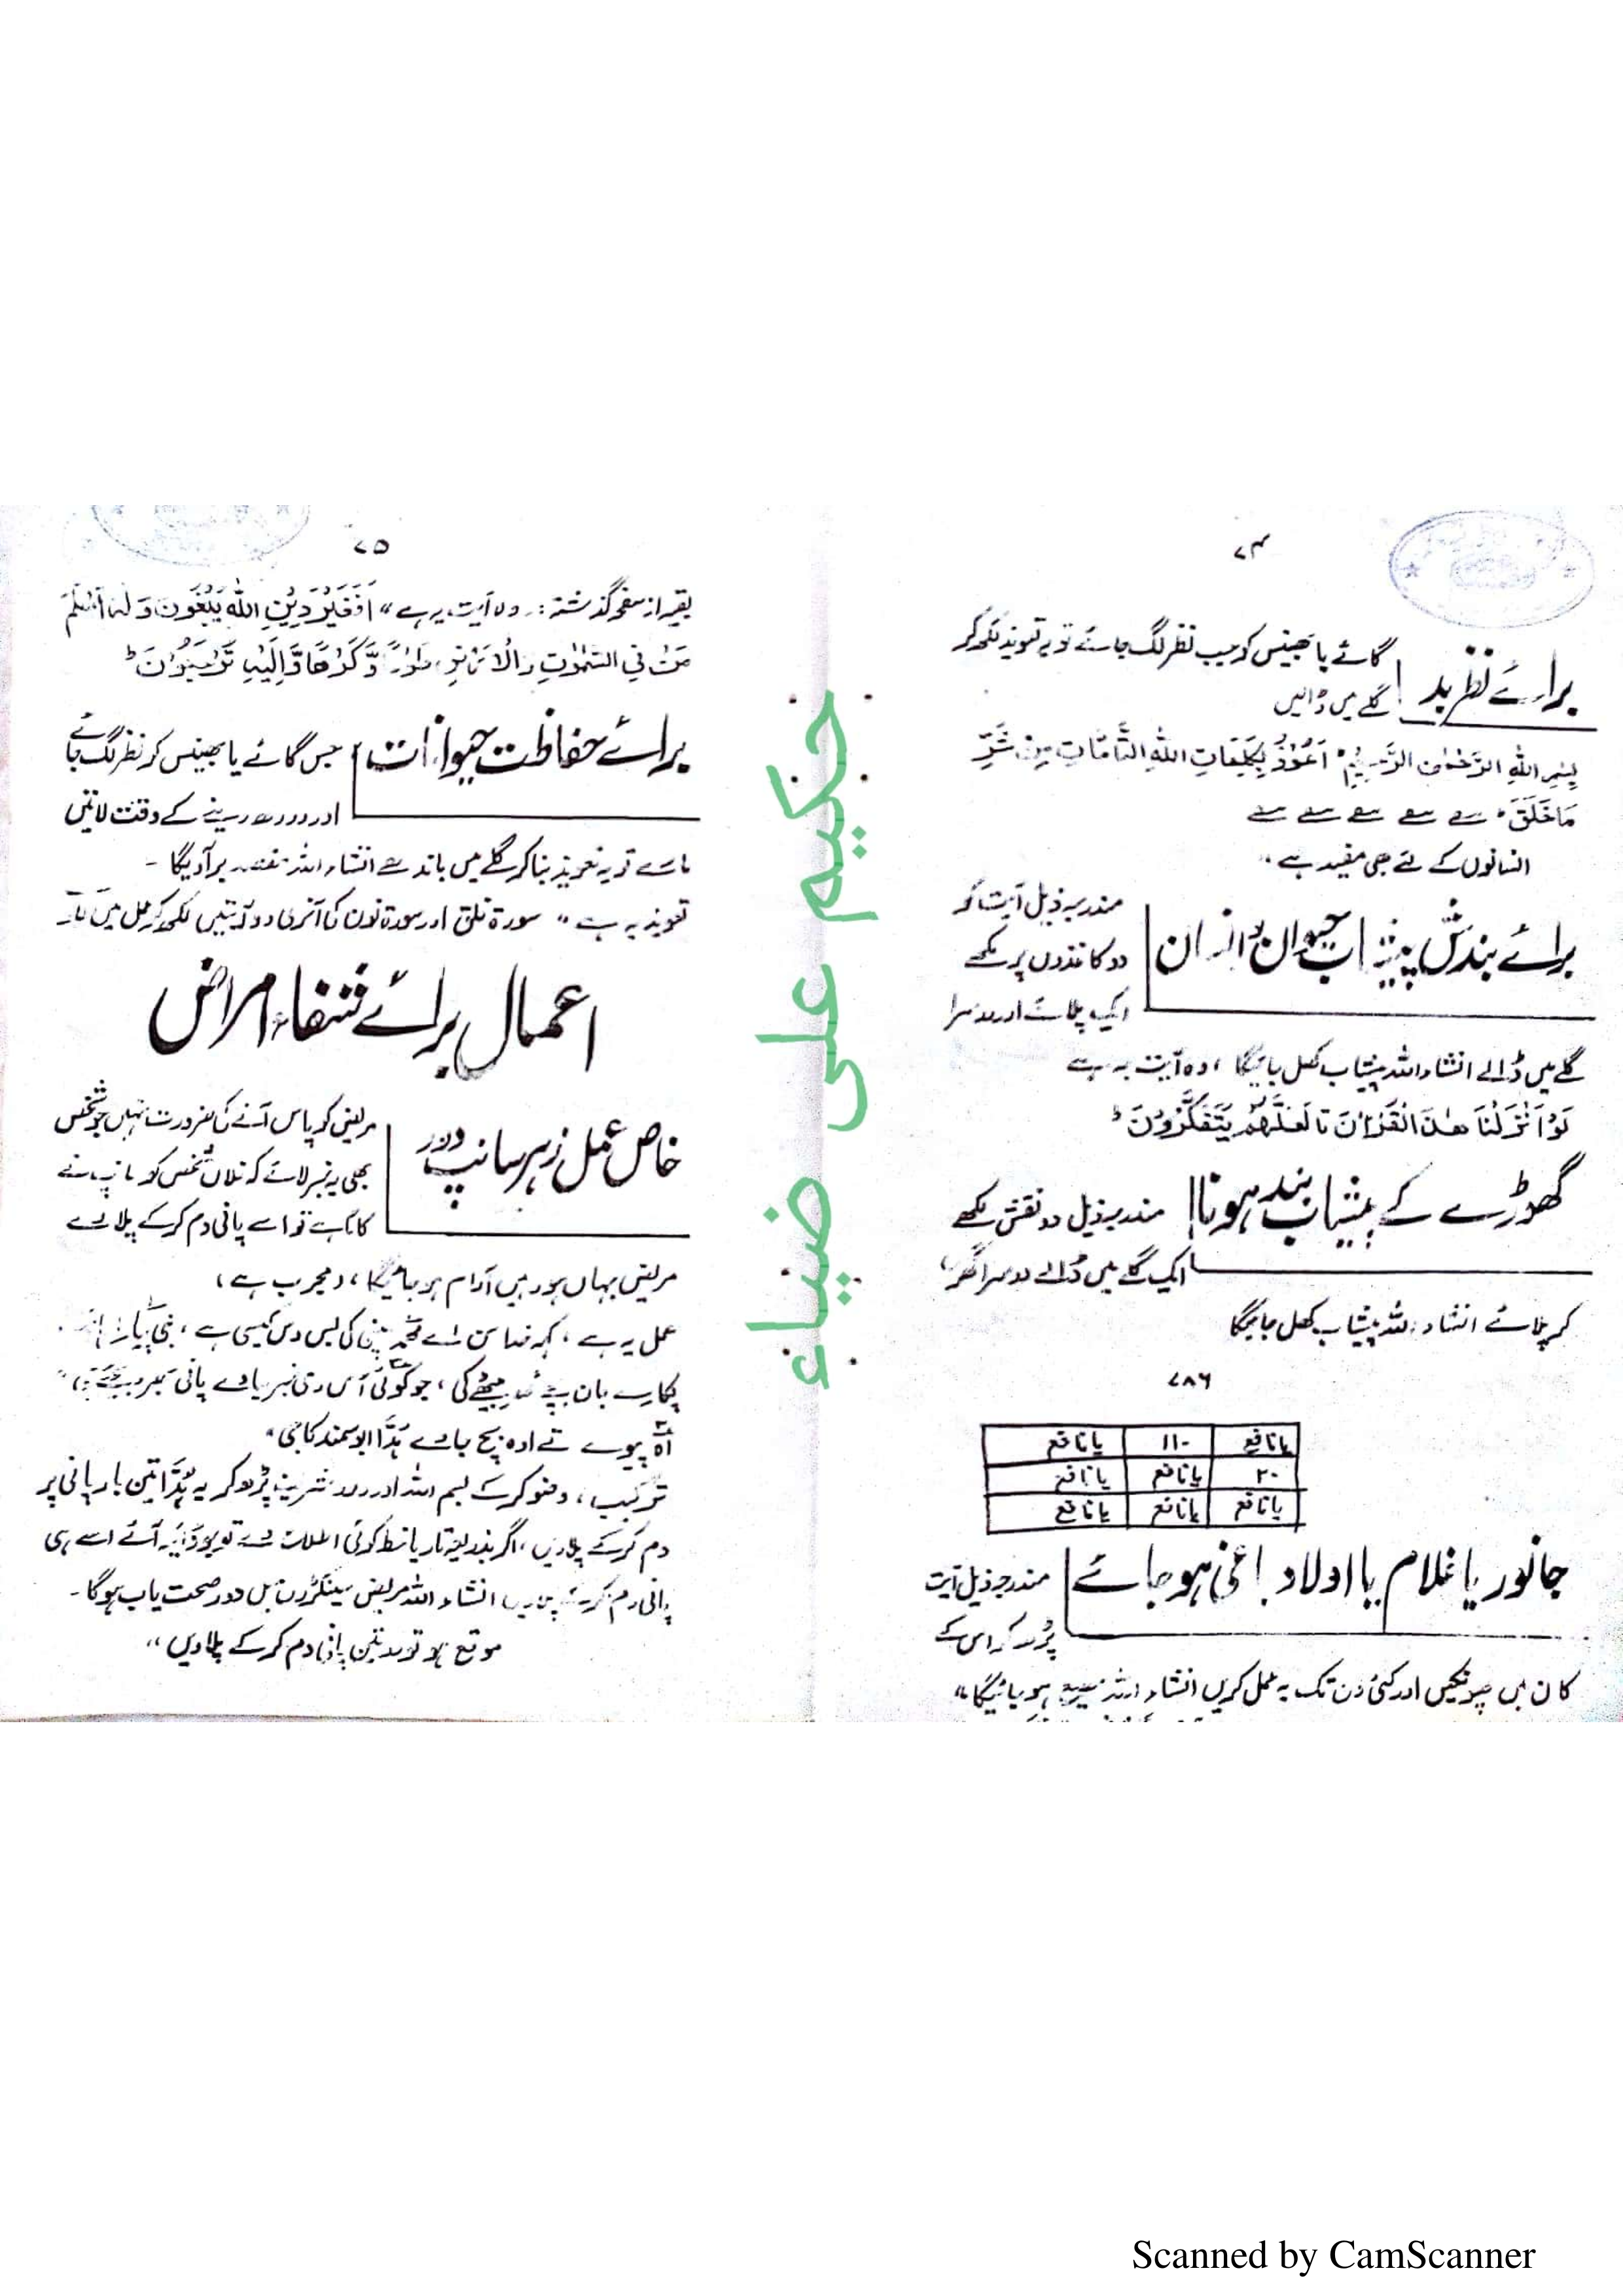 ۷۴
برائے نظر بد
گائے یا بھینس کو جب نظر لگ جائے تو یہ تعویذ لکھ کر
گلے میں ڈالیں
بِسْمِ اللهِ الرَّحْمٰنِ الرَّحِيْمِ اَعُوْذُ بِكَلِمَاتِ اللهِ التَّامَّاتِ مِنْ شَرِّ
مَا خَلَقَ
انسانوں کے لئے بھی مفید ہے
برائے بندش پیشاب حیوان و انسان
مندرجہ ذیل آیت کو
دو کاغذوں پر لکھے
ایک پلائے اور دوسرا
گلے میں ڈالے انشاء اللہ پیشاب کھل جائیگا، وہ آیت یہ ہے
لَوْ اَنْزَلْنَا هٰذَا الْقُرْاٰنَ تا لَعَلَّهُمْ يَتَفَكَّرُوْنَ
گھوڑے کے پیشاب بند ہونا
مندرجہ ذیل دو نقش لکھے
ایک گلے میں ڈالے دوسرا گھول
کر پلائے انشاء اللہ پیشاب کھل جائیگا
۷۸۶
یا نافع ۱۱۰ یا نافع
۲۰ یا نافع یا نافع
یا نافع یا نافع یا نافع
جانور یا غلام یا اولاد باغی ہو جائے
مندرجہ ذیل آیت
پڑھ کر اس کے
کان میں پھونکیں اور کئی دن تک یہ عمل کریں انشاء اللہ مطیع ہو جائیگا
حکیم علی ضیاء
۷۵
بقیہ از صفحہ گذشتہ:۔ وہ آیت یہ ہے " اَفَغَيْرَ دِيْنِ اللهِ يَبْغُوْنَ وَلَهٗ اَسْلَمَ
مَنْ فِي السَّمٰوٰتِ وَالْاَرْضِ طَوْعًا وَّكَرْهًا وَّاِلَيْهِ تُرْجَعُوْنَ
برائے حفاظت حیوانات
جس گائے یا بھینس کو نظر لگ جائے
اور دودھ دینے کے وقت لاتیں
مارے تو یہ تعویذ بنا کر گلے میں باندھے انشاء اللہ مقصد بر آویگا ۔
تعویذ یہ ہے " سورۃ فلق اور سورۃ نون کی آخری دو آیتیں لکھ کر گلے میں
اعمال برائے شفاء امراض
خاص عمل زہر سانپ دور
مریض کو پاس آنے کی ضرورت نہیں جو شخص
بھی یہ خبر لائے کہ فلاں شخص کو سانپ نے
کاٹا ہے تو اسے پانی دم کرکے پلا دے
مریض جہاں ہو وہیں آرام ہو جائیگا، مجرب ہے،
عمل یہ ہے،
ترکیب، وضو کرکے بسم اللہ اور درود شریف پڑھ کر یہ تین بار پانی پر
دم کرکے پلا دیں، اگر بذریعہ تار یا خط کوئی اطلاع دے تو جو ڈاکیہ آئے اسے ہی
پانی دم کرکے پلا دیں انشاء اللہ مریض سینکڑوں میل دور صحت یاب ہوگا ۔
موقع ہو تو مریض پر دم کرکے پلا دیں "
Scanned by CamScanner